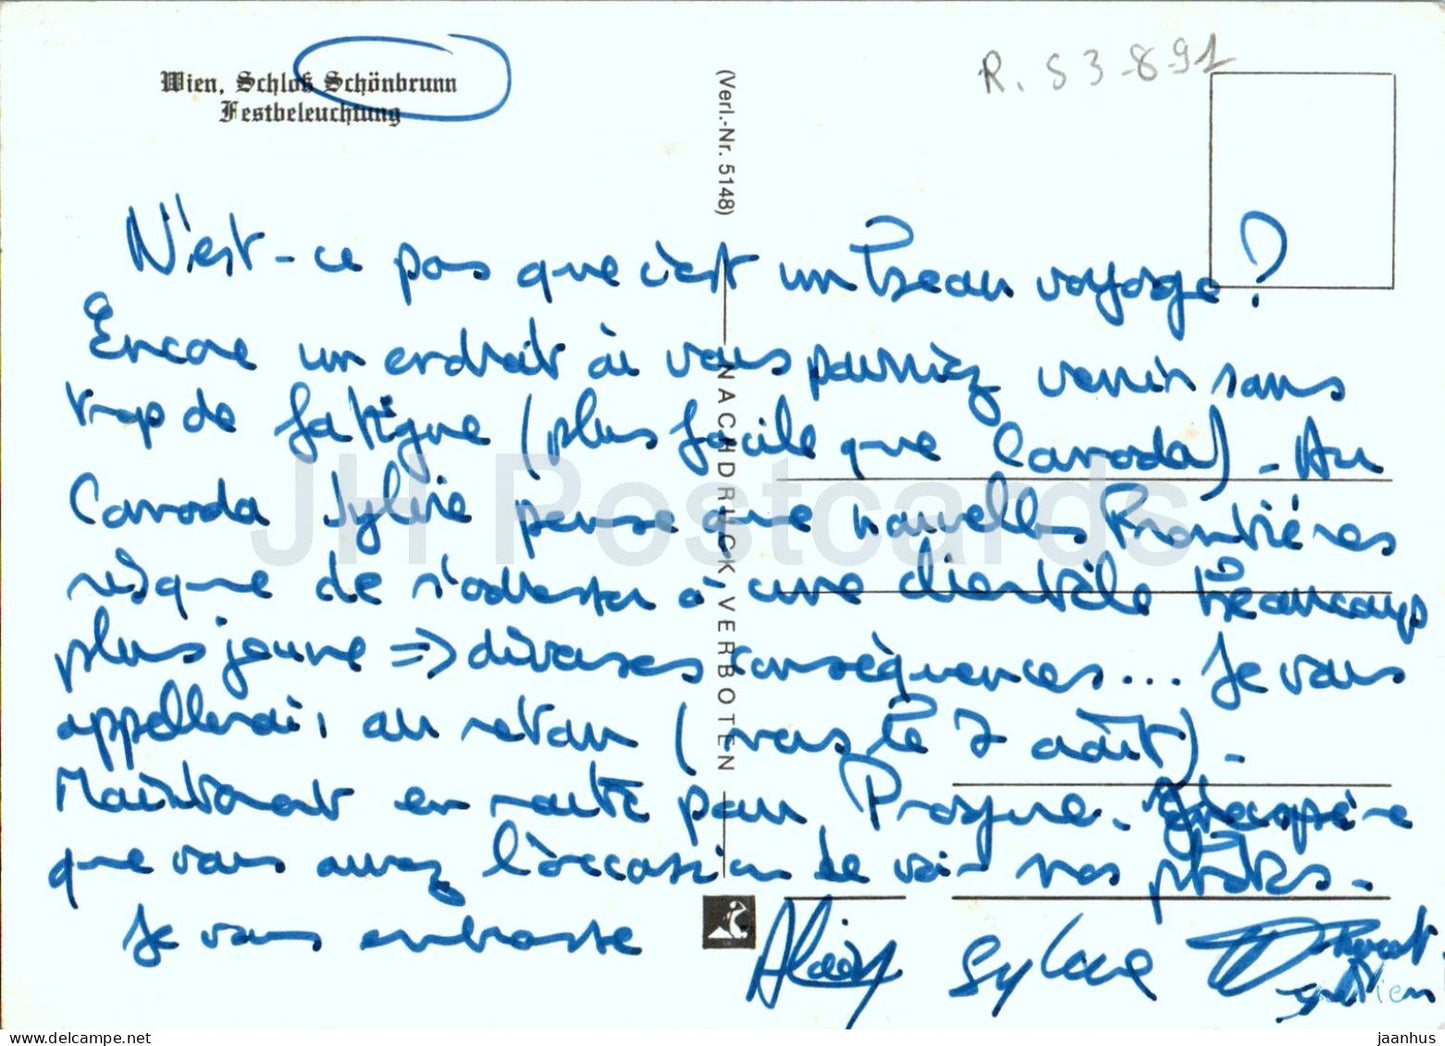 Wien, Schloß Schönbrunn
Festbeleuchtung
R. S 3-8-91
(Verl.-Nr. 5148)
NACHDRUCK VERBOTEN
N'est-ce pas que c'est un beau voyage?
Encore un endroit où vous pourriez venir sans
trop de fatigue (plus facile que Canada) - Au
Canada Sylvie pense que nouvelles Frontières
risque de s'adresser à une clientèle beaucoup
plus jeune => diverses conséquences... Je vous
appellerai au retour (vers le 7 août) -
Maintenant en route pour Prague. J'espère
que vous aurez l'occasion de voir nos photos -
Je vous embrasse
Alain Sylvie
JH Postcards
jaanhus
hipstamp.com